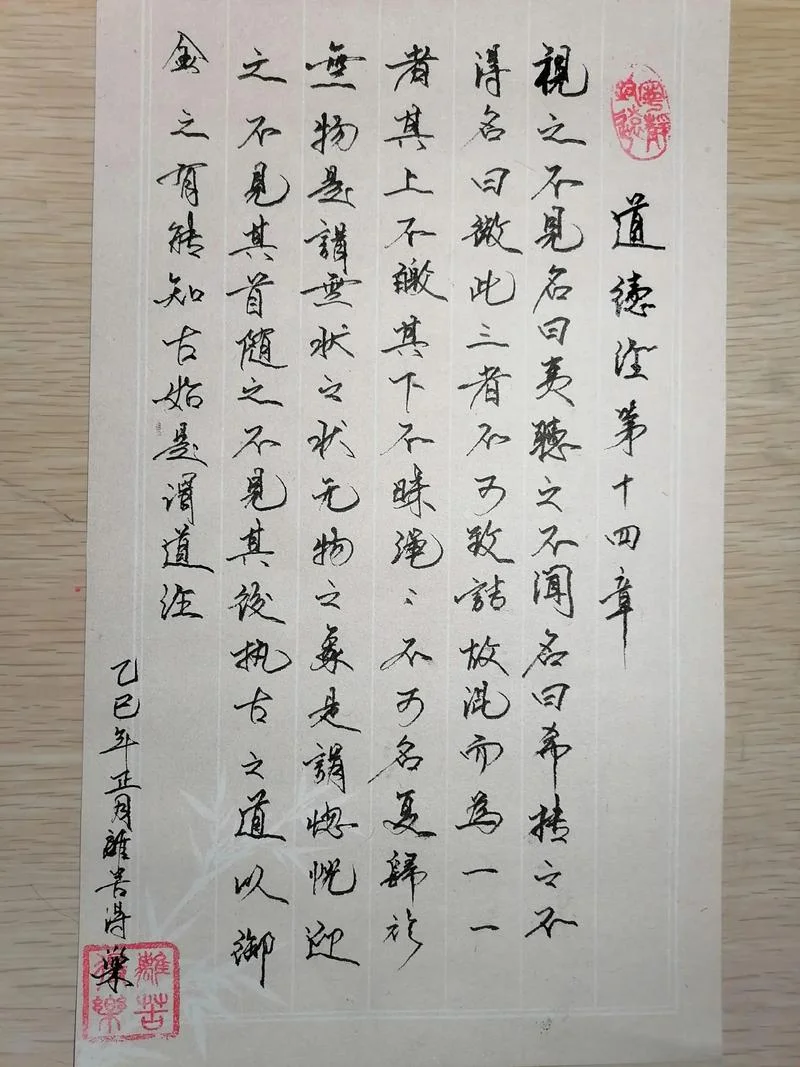 寧靜致遠
道德經第十四章
視之不見名曰夷聽之不聞名曰希搏之不
得名曰微此三者不可致詰故混而為一一
者其上不皦其下不昧繩〻不可名复歸於
無物是謂無状之状无物之象是謂惚恍迎
之不見其首随之不見其後执古之道以御
金之有能知古始是謂道經
乙巳年正月離苦得樂
離苦得樂